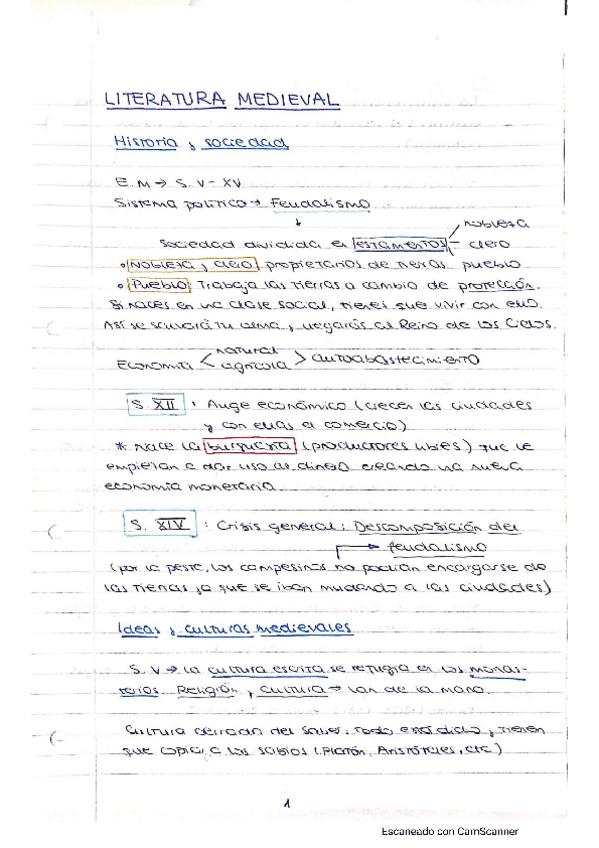 LITERATURA MEDIEVAL
Historia y sociedad
E.M → S. V - XV
Sistema político → Feudalismo
↓
nobleza
Sociedad dividida en estamentos clero
• Nobleza y clero, propietarios de tierras pueblo
• Pueblo: Trabaja las tierras a cambio de protección.
Si naces en una clase social, tienes que vivir con ello.
Así se salvará tu alma y llegarás al Reino de los Cielos.
natural
Economía < agrícola > autoabastecimiento
S. XII : Auge económico (crecen las ciudades
y con ellas el comercio)
* Nace la burguesía (productores libres) que le
empiezan a dar uso al dinero creando una nueva
economía monetaria.
S. XIV : Crisis general: Descomposición del
feudalismo
(por la peste, los campesinos no podían encargarse de
las tierras ya que se iban mudando a las ciudades)
Ideas y culturas medievales
S. V → la cultura escrita se refugia en los monas-
terios. Religión y cultura → van de la mano.
Cultura cerrada del saber: todo está dicho y tienen
que copiar a los sabios (Platón, Aristóteles, etc)
1
Escaneado con CamScanner